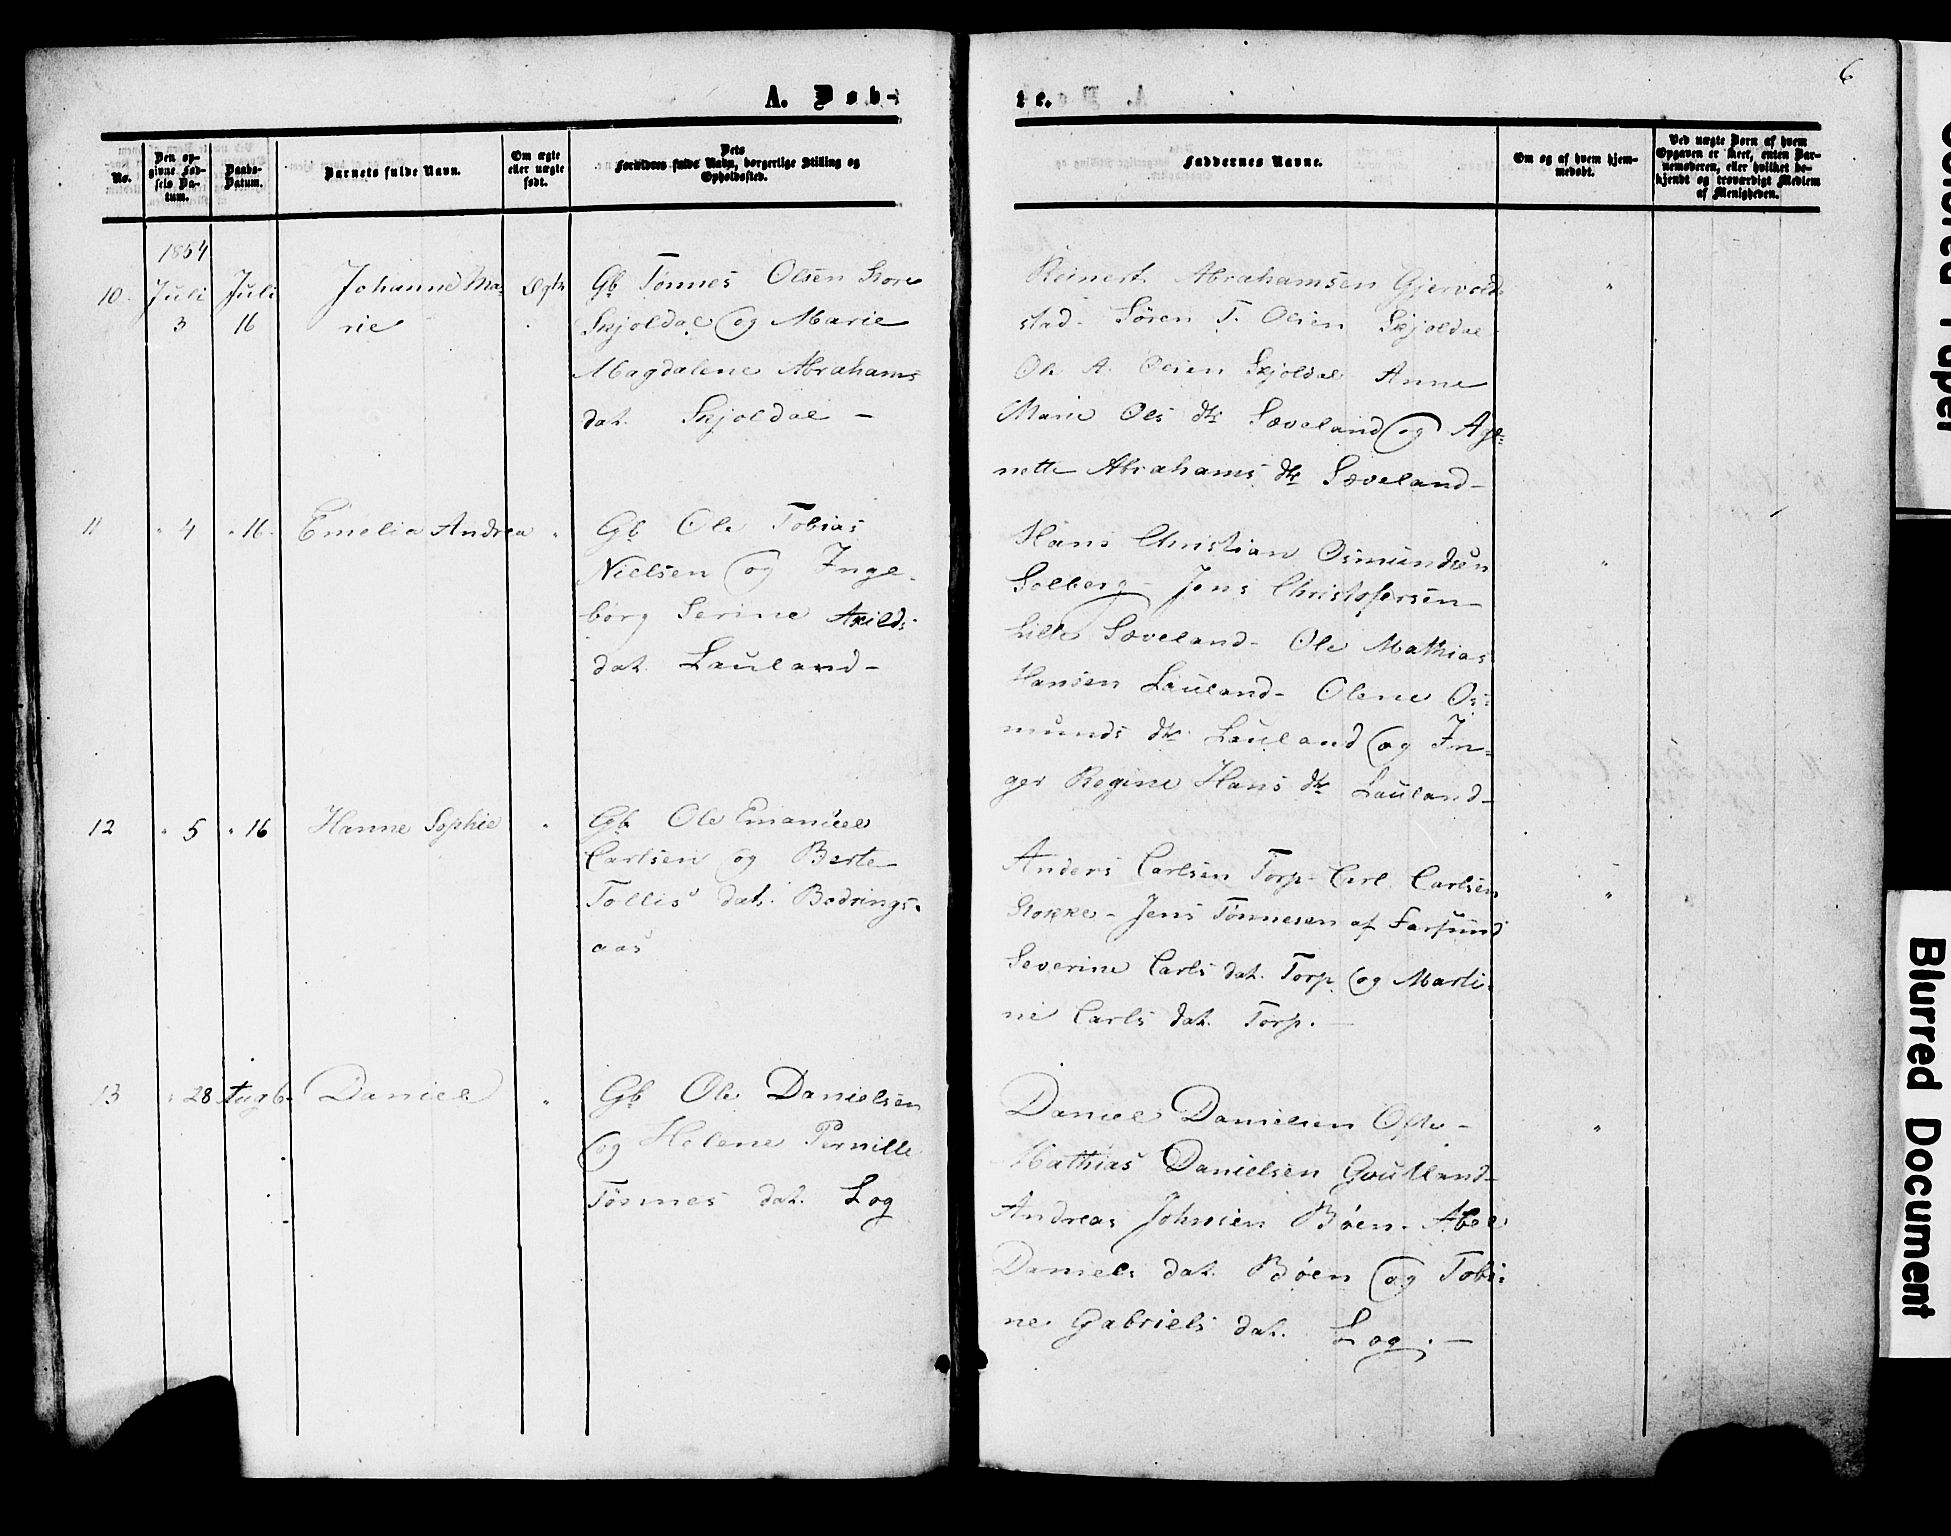 6
A. Døb-
te.
No.
Den op-
givne Fød-
sels Da-
tum.
Daabs-
Datum.
Barnets fulde Navn.
Om ægte
eller uægte
født.
Dets
Forældres fulde Navn, borgerlige Stilling og
Opholdssted.
Faddernes Navne.
Om og af hvem hjem-
medøbt.
Ved uægte Børn af hvem
Opgaven er skeet, enten Bar-
nemoderen, eller hvilket be-
kjendt og troværdigt Medlem
af Menigheden.
1854
10.
Juli
3
Juli
16
Johanne Ma-
rie
Ægte
Gb Tønnes Olsen Store
Skjoldal og Marie
Magdalene Abrahams
dat. Skjoldal -
Reinert Abrahamsen Gjervold-
stad - Søren T. Olsen Skjoldal
Ole A. Olsen Skjoldal Anne
Marie Ols dtr Sæveland og Age-
nette Abrahams dtr Sæveland -
"
11
" 4
" 16.
Emelia Andrea
"
Gb Ole Tobias
Nielsen og Inge-
borg Serine Axilds
dat. Lauland -
Hans Christian Osmundsen
Solberg - Jens Christofersen
Lille Sæveland - Ole Mathias
Hansen Lauland - Olene Os-
munds dtr Lauland og In-
ger Regine Hans dtr Lauland -
"
12
" 5
" 16
Hanne Sophie
"
Gb Ole Emanuel
Carlsen og Berte
Tollis dat. Bodrings-
aas
Anders Carlsen Torp - Carl Carlsen
Stokke - Jens Tønnesen af Farsund
Severine Carls dat. Torp og Marti-
ne Carls dat. Torp. -
"
13
" 28
Aug 6.
Daniel
"
Gb Ole Danielsen
og Helene Pernille
Tønnes dat. Log
Daniel Danielsen Ofte -
Mathias Danielsen Gvulland -
Andreas Johnsen Bøen - Abel
Daniels dat. Bøen og Tobi-
ne Gabriels dat. Log. -
"
Blurred Document